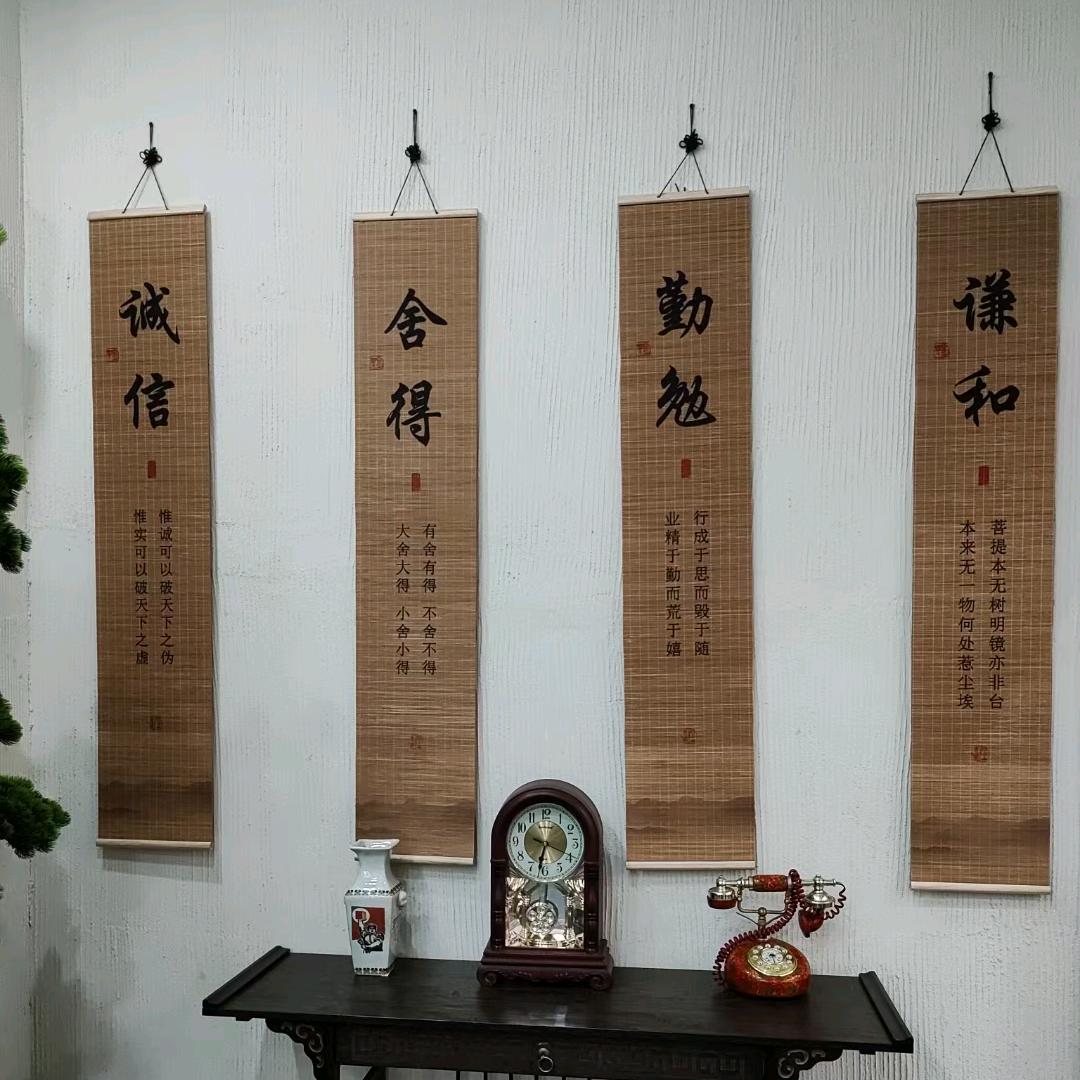 诚信
惟诚可以破天下之伪
惟实可以破天下之虚
舍得
有舍有得 不舍不得
大舍大得 小舍小得
勤勉
行成于思而毁于随
业精于勤而荒于嬉
谦和
菩提本无树明镜亦非台
本来无一物何处惹尘埃